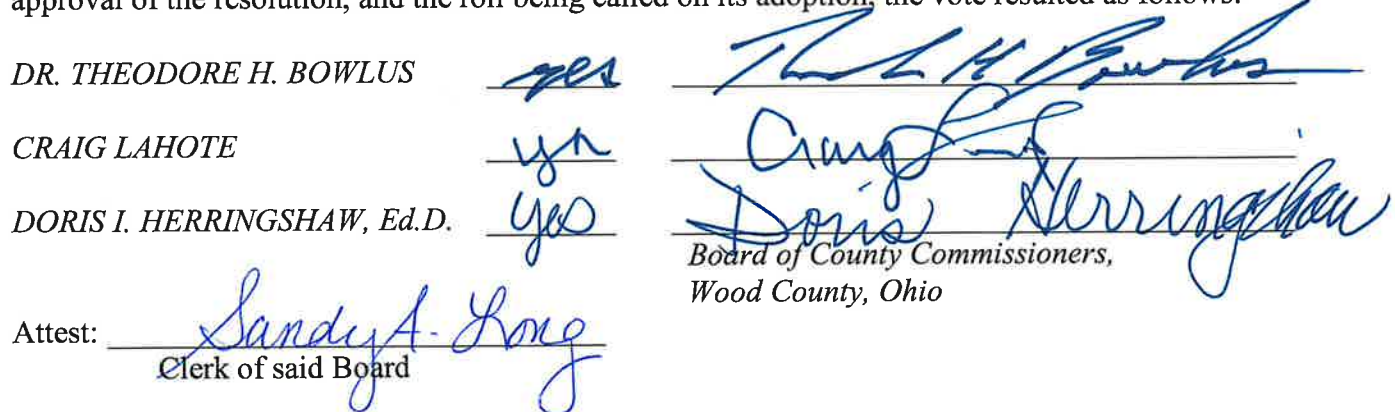 approval of the resolution, and the roll being called on its adoption, the vote resulted as follows:
DR. THEODORE H. BOWLUS yes H Bowlus
CRAIG LAHOTE yes Craig
DORIS I. HERRINGSHAW, Ed.D. yes Doris Herringshaw
Board of County Commissioners,
Wood County, Ohio
Attest: Sandy A. Long
Clerk of said Board